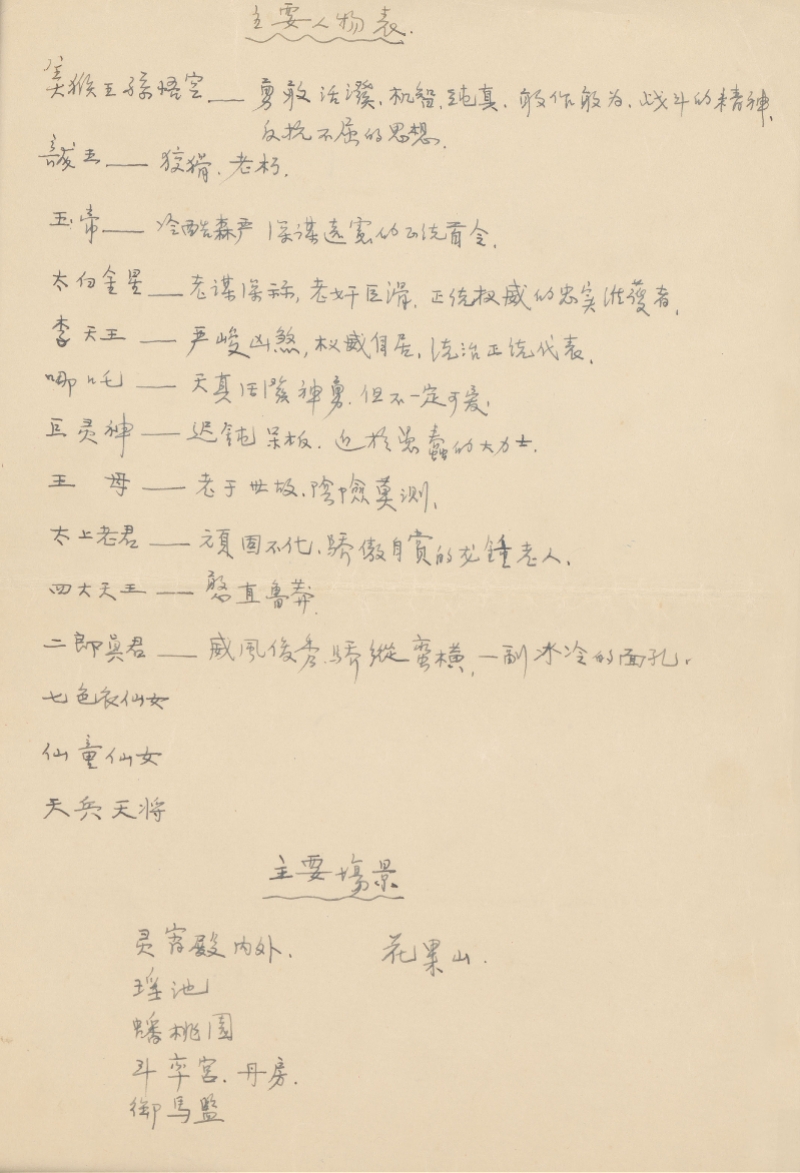 主要人物表.
美猴王孫悟空——勇敢活潑.机智.純真.敢作敢为.战斗的精神、
反抗不屈的思想.
王——狡猾.老朽.
玉帝——冷酷森严 深謀遠慮的正统首令.
太白金星——老谋深祘,老奸巨滑.正统权威的忠实维護者.
李天王——严峻凶煞,权威自居,统治正统代表.
哪吒——天真活潑神勇.但不一定可爱.
巨灵神——迟鈍呆板.近於愚蠢的大力士.
王母——老于世故.陰險莫测.
太上老君——頑固不化.驕傲自賞的龙鍾老人.
四大天王——憨直魯莽.
二郎真君——威風俊秀.驕縱蛮横,一副冰冷的面孔.
七色衣仙女
仙童仙女
天兵天将
主要場景
灵宵殿内外. 花果山.
瑶池
蟠桃園
斗率宫.丹房.
御馬監